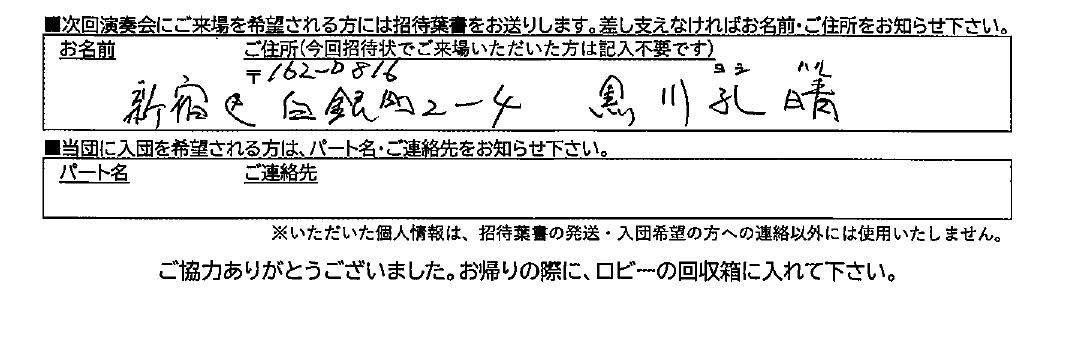 ■次回演奏会にご来場を希望される方には招待葉書をお送りします。差し支えなければお名前・ご住所をお知らせ下さい。
お名前 ご住所(今回招待状でご来場いただいた方は記入不要です)
〒162-0816
ヨシ ハル
新宿区白銀町2-4 黒川孔晴
■当団に入団を希望される方は、パート名・ご連絡先をお知らせ下さい。
パート名 ご連絡先
※いただいた個人情報は、招待葉書の発送・入団希望の方への連絡以外には使用いたしません。
ご協力ありがとうございました。お帰りの際に、ロビーの回収箱に入れて下さい。